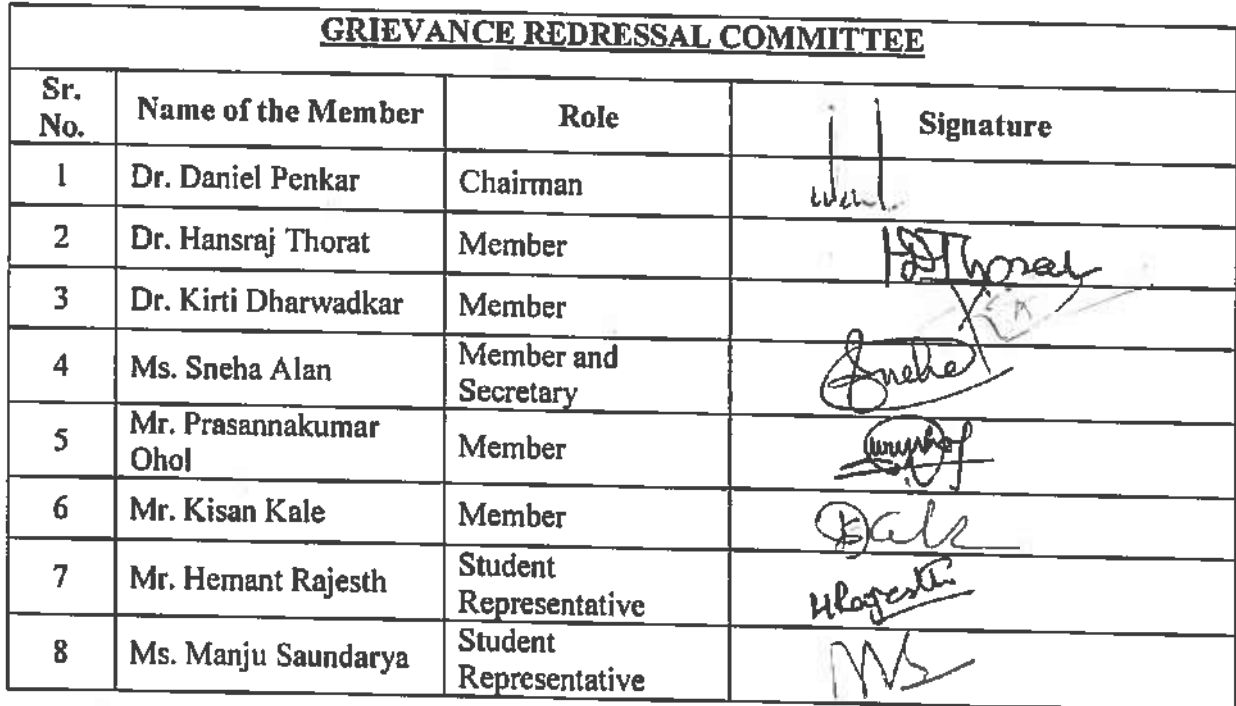 GRIEVANCE REDRESSAL COMMITTEE
Sr. No. Name of the Member Role Signature
1 Dr. Daniel Penkar Chairman
2 Dr. Hansraj Thorat Member HDThorat
3 Dr. Kirti Dharwadkar Member
4 Ms. Sneha Alan Member and Secretary Sneha
5 Mr. Prasannakumar Ohol Member
6 Mr. Kisan Kale Member Kale
7 Mr. Hemant Rajesth Student Representative HRajesth
8 Ms. Manju Saundarya Student Representative